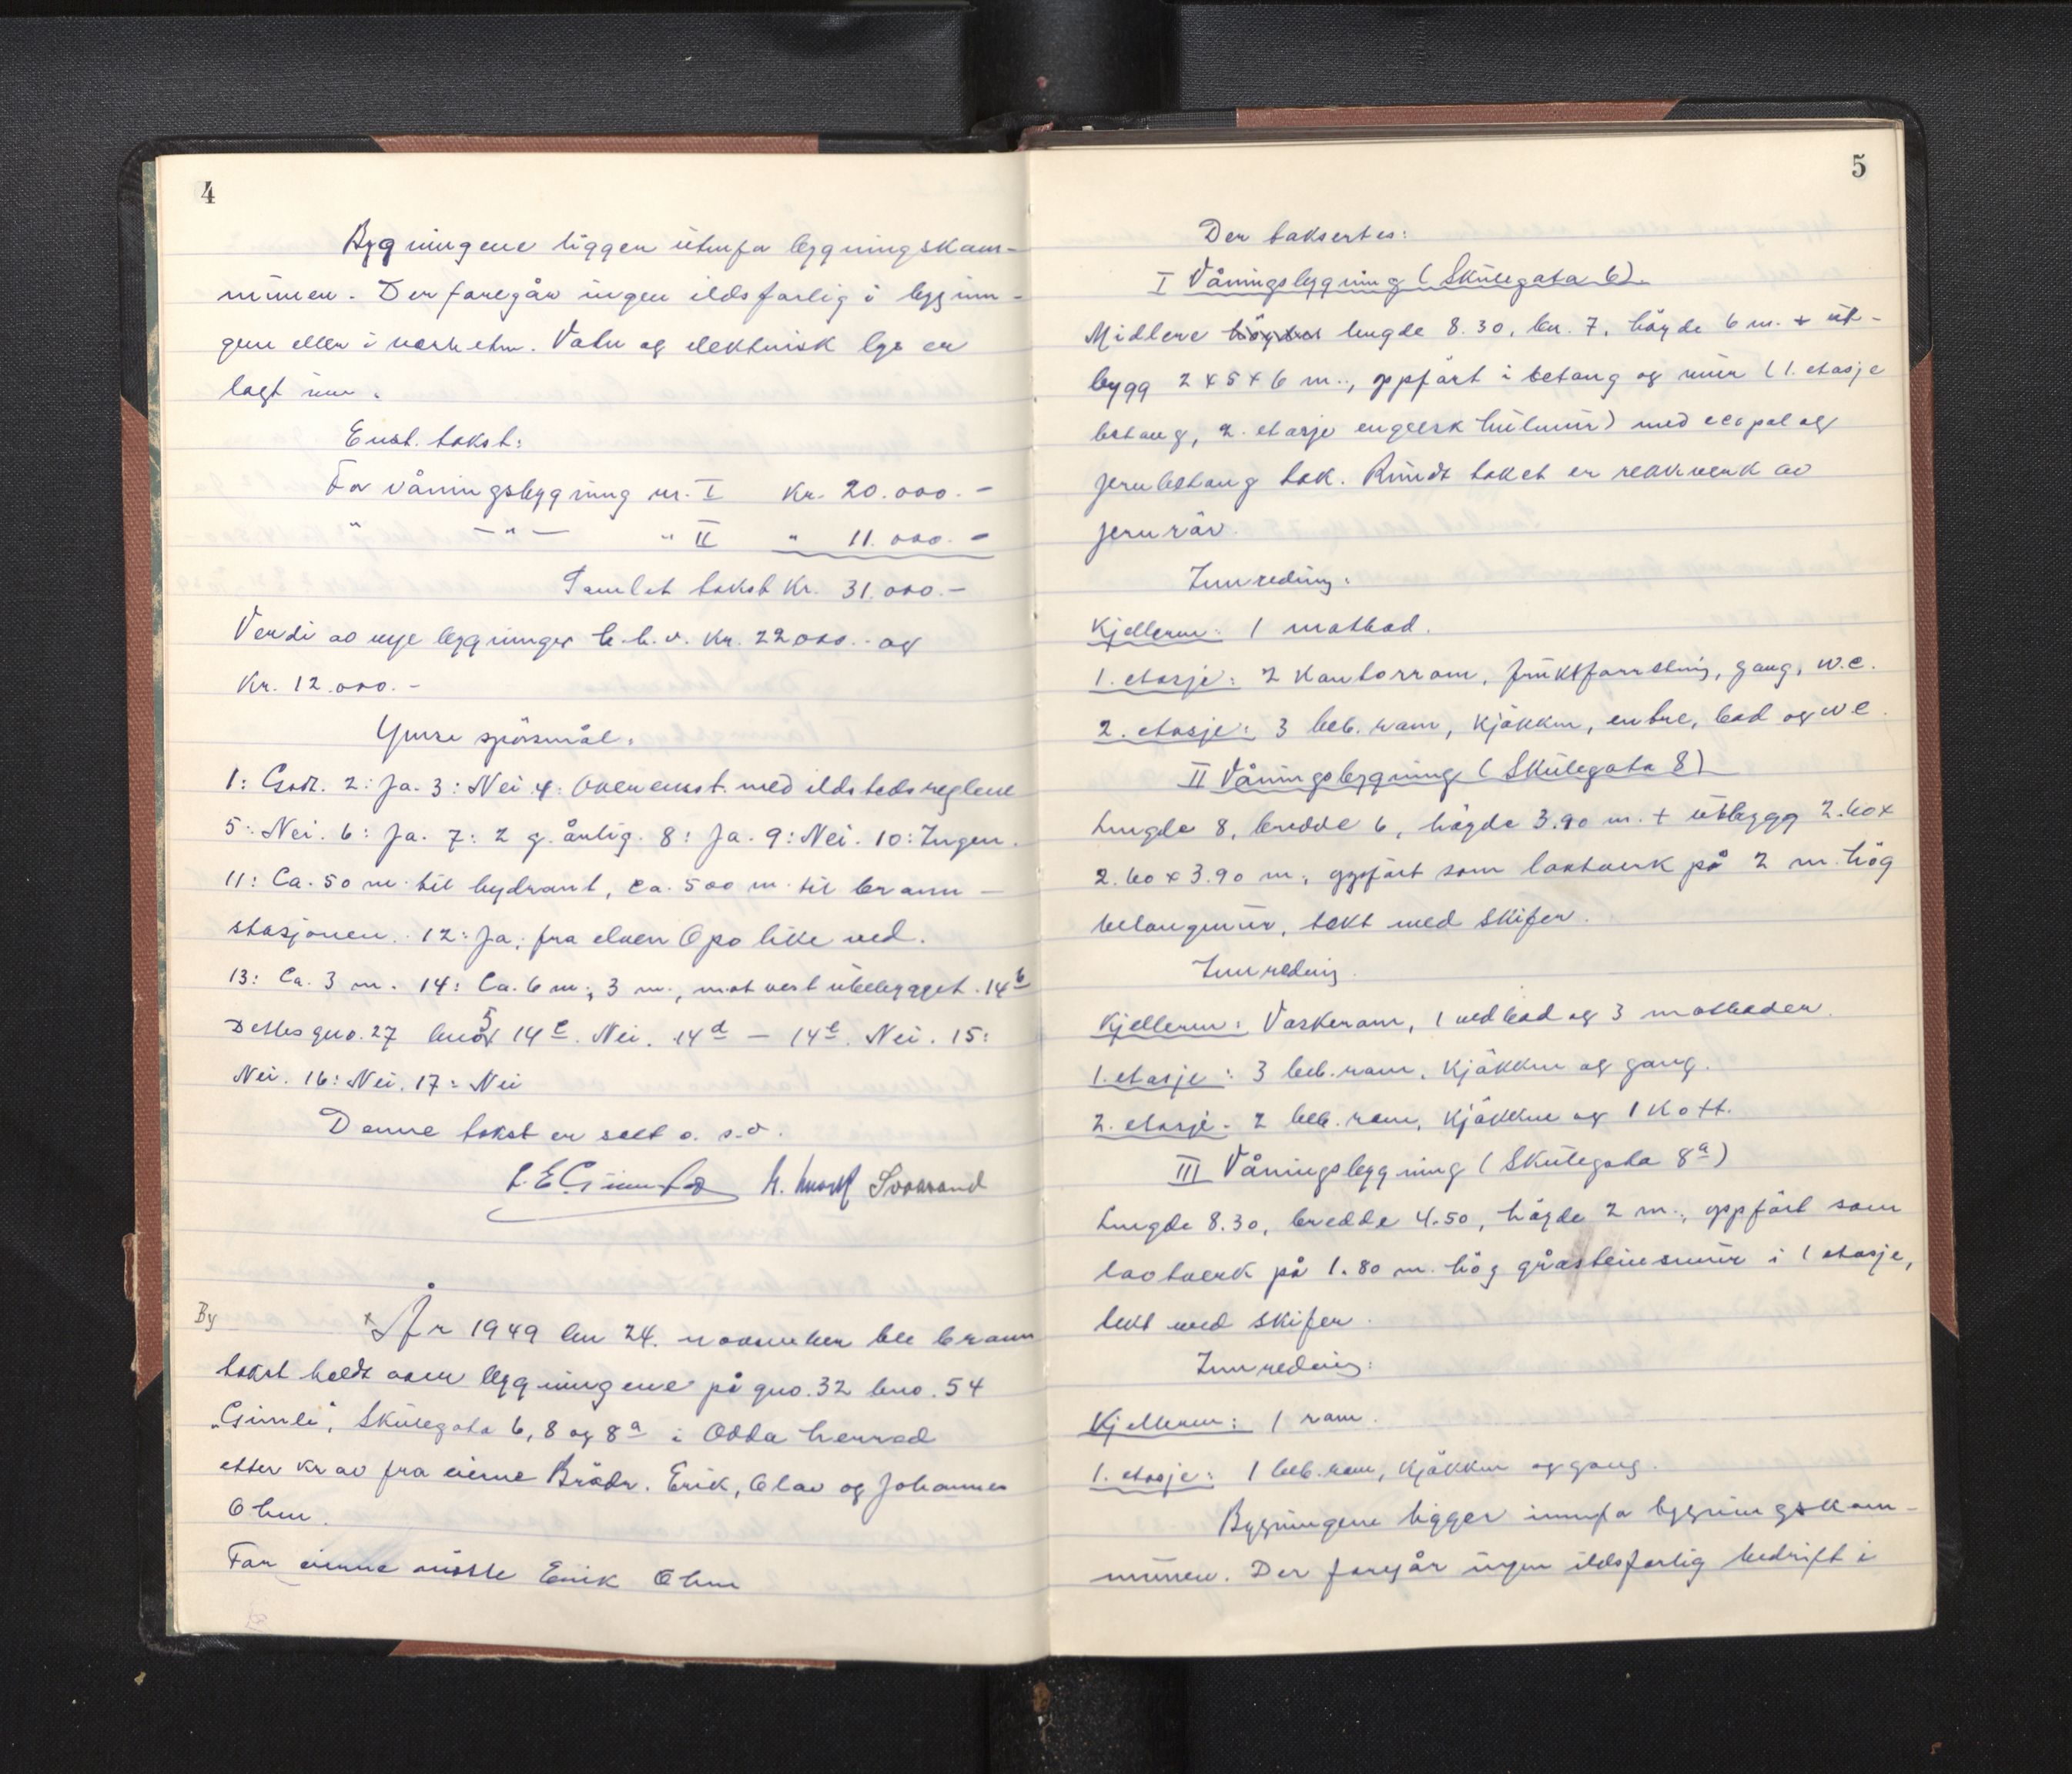 4
Bygningene ligger utenfor bygningskom-
munen. Der foregår ingen ildsfarlig i bygnin-
gen eller i nærheten. Vatn og elektrisk lys er
lagt inn.
Enst. takst:
For våningsbygning nr. I Kr. 20.000.-
" -"- " II " 11.000.-
Samlet takst Kr. 31.000.-
Verdi av nye bygninger h.h.v. Kr. 22000.- og
Kr. 12.000.-
Ymse spörsmål.
1: Godt. 2: Ja. 3: Nei 4: Overenst. med ildstedsreglene
5: Nei. 6: Ja. 7: 2 g. årlig. 8: Ja. 9: Nei. 10: Ingen.
11: Ca. 50 m. til hydrant, ca. 500 m. til brann-
stasjonen. 12: Ja, fra elven Opo like ved.
13: Ca. 3 m. 14: Ca. 6 m., 3 m., mot vest ubebygget. 14b
Dettes gno. 27 bno 5 14c. Nei. 14d - 14e. Nei. 15:
Nei. 16: Nei. 17: Nei
Denne takst er satt o. s. v.
Svarand
By
År 1949 den 24. november ble brann
takst holdt over bygningene på gno. 32 bno. 54
"Gimle", Skulegata 6, 8 og 8a i Odda herrad
etter krav fra eierne Brödr. Erik, Olav og Johannes
Ohm.
For eierne møtte Erik Ohm
5
Der taksertes:
I Våningsbygning (Skulegata 6).
Midlere högde lengde 8.30, br. 7, högde 6 m. + ut-
bygg 2 x 5 x 6 m., oppfört i betong og mur (1. etasje
betong, 2. etasje engelsk hulmur) med ecopal og
jernbetong tak. Rundt taket er rekkverk av
jernrör.
Innreding.
Kjelleren: 1 matbod.
1. etasje: 2 Kontorrom, fruktforretning, gang, w.c.
2. etasje: 3 beb. rom, Kjökken, entre, bad og w c.
II Våningsbygning (Skulegata 8)
Lengde 8, bredde 6, högde 3.90 m. + utbygg 2.60 x
2.60 x 3.90 m., oppfört som laftverk på 2 m. hög
betongmur, tekt med skifer.
Innreding.
Kjelleren: Vaskerom, 1 vedbod og 3 matboder.
1. etasje: 3 beb. rom, Kjökken og gang.
2. etasje. 2 beb. rom, Kjökken og 1 Kott.
III Våningsbygning (Skulegata 8a)
Lengde 8.30, bredde 4.50, högde 2 m., oppfört som
laftverk på 1.80 m. hög gråsteinsmur i 1 etasje,
tekt med skifer.
Innreding:
Kjelleren: 1 rom.
1. etasje: 1 beb. rom, Kjökken og gang.
Bygningene ligger innafor bygningskom-
munen. Der foregår ingen ildsfarlig bedrift i